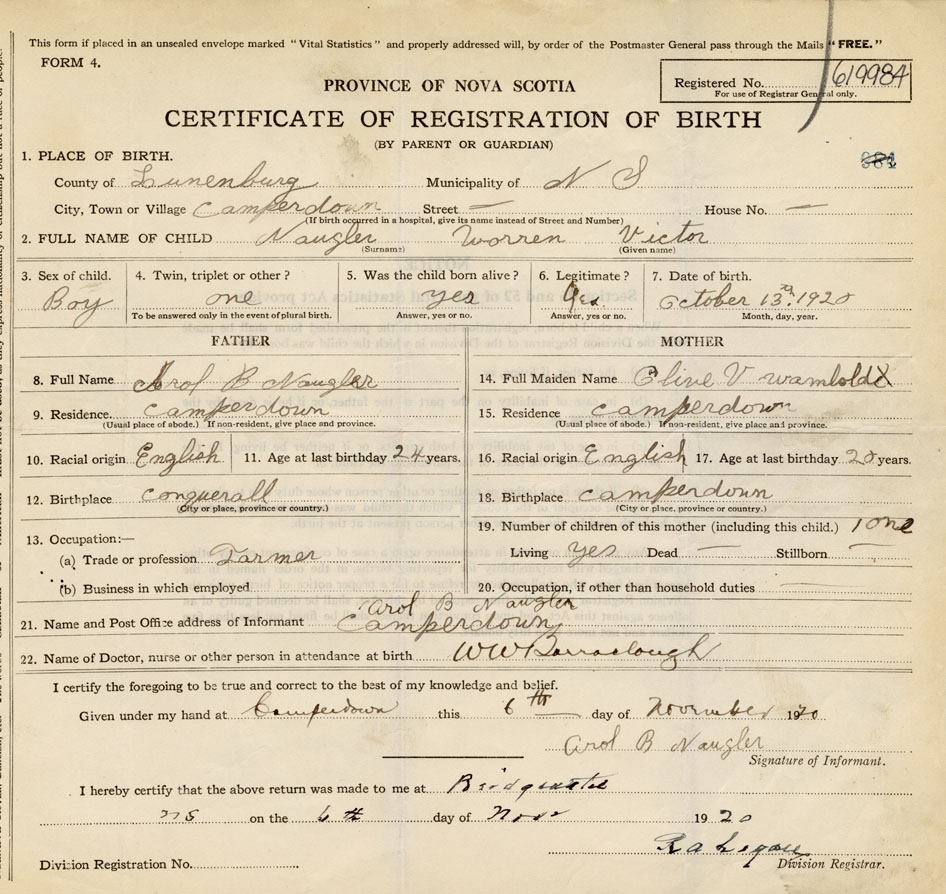 This form if placed in an unsealed envelope marked "Vital Statistics" and properly addressed will, by order of the Postmaster General pass through the Mails "FREE."
FORM 4.
Registered No. 619984
For use of Registrar General only.
PROVINCE OF NOVA SCOTIA
CERTIFICATE OF REGISTRATION OF BIRTH
(BY PARENT OR GUARDIAN)
681
1. PLACE OF BIRTH.
County of Lunenburg Municipality of N S
City, Town or Village Camperdown Street — House No. —
(If birth occurred in a hospital, give its name instead of Street and Number)
2. FULL NAME OF CHILD Naugler Worren Victor
(Surname) (Given name)
3. Sex of child. 4. Twin, triplet or other? 5. Was the child born alive? 6. Legitimate? 7. Date of birth.
Boy one yes Yes. October 13th. 1920
To be answered only in the event of plural birth. Answer, yes or no. Answer, yes or no. Month, day, year.
FATHER MOTHER
8. Full Name Arol B Naugler 14. Full Maiden Name Olive V Wambold
9. Residence. Camperdown 15. Residence Camperdown
(Usual place of abode.) If non-resident, give place and province. (Usual place of abode.) If non-resident, give place and province.
10. Racial origin English 11. Age at last birthday 24 years. 16. Racial origin English 17. Age at last birthday 20 years.
12. Birthplace Conquerall 18. Birthplace Camperdown
(City or place, province or country.) (City or place, province or country.)
13. Occupation:— 19. Number of children of this mother (including this child.) 1 one
(a) Trade or profession Farmer Living yes Dead — Stillborn —
(b) Business in which employed 20. Occupation, if other than household duties
Arol B Naugler
21. Name and Post Office address of Informant Camperdown
22. Name of Doctor, nurse or other person in attendance at birth W W Barraclough
I certify the foregoing to be true and correct to the best of my knowledge and belief.
Given under my hand at Camperdown this 6th day of November 1920
Arol B Naugler
Signature of Informant.
I hereby certify that the above return was made to me at Bridgewater
NS on the 6th day of Nov 1920
Division Registration No. Division Registrar.